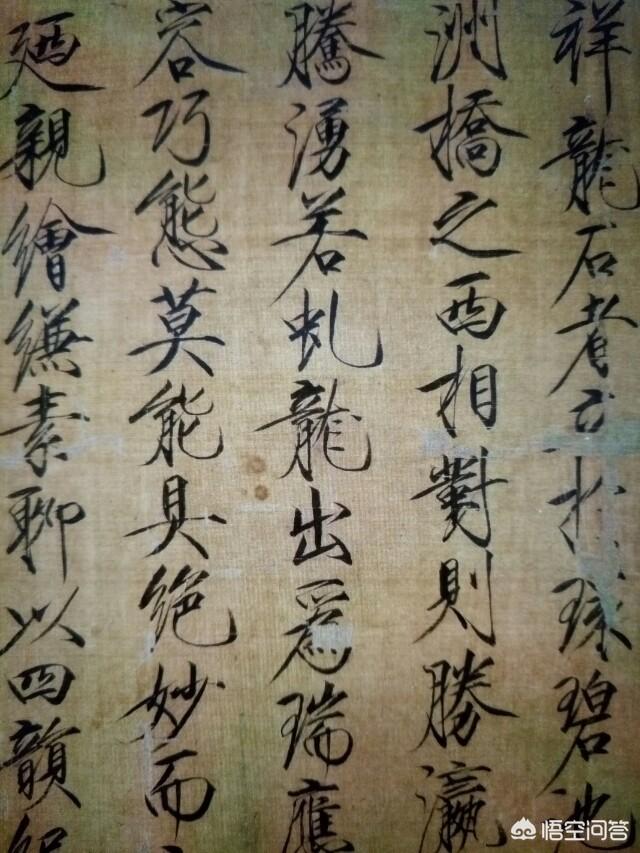 祥龍石者立於環碧池
洲橋之西相對則勝瀛
騰湧若虬龍出爲瑞應
容巧態莫能具絶妙而
廼親繪縑素聊以四韻紀
悟空问答